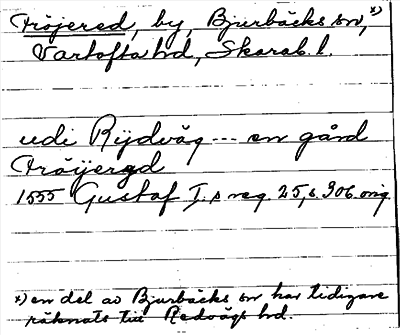 Höjered, by, Bjurbäcks sn, x)
Vartofta hd, Skarab. l.
udi Rijdväg --- en gård
Höijergd
1555 Gustaf I:s reg. 25, s. 306. orig.
x) en del av Bjurbäcks sn har tidigare
räknats till Redvägs hd.